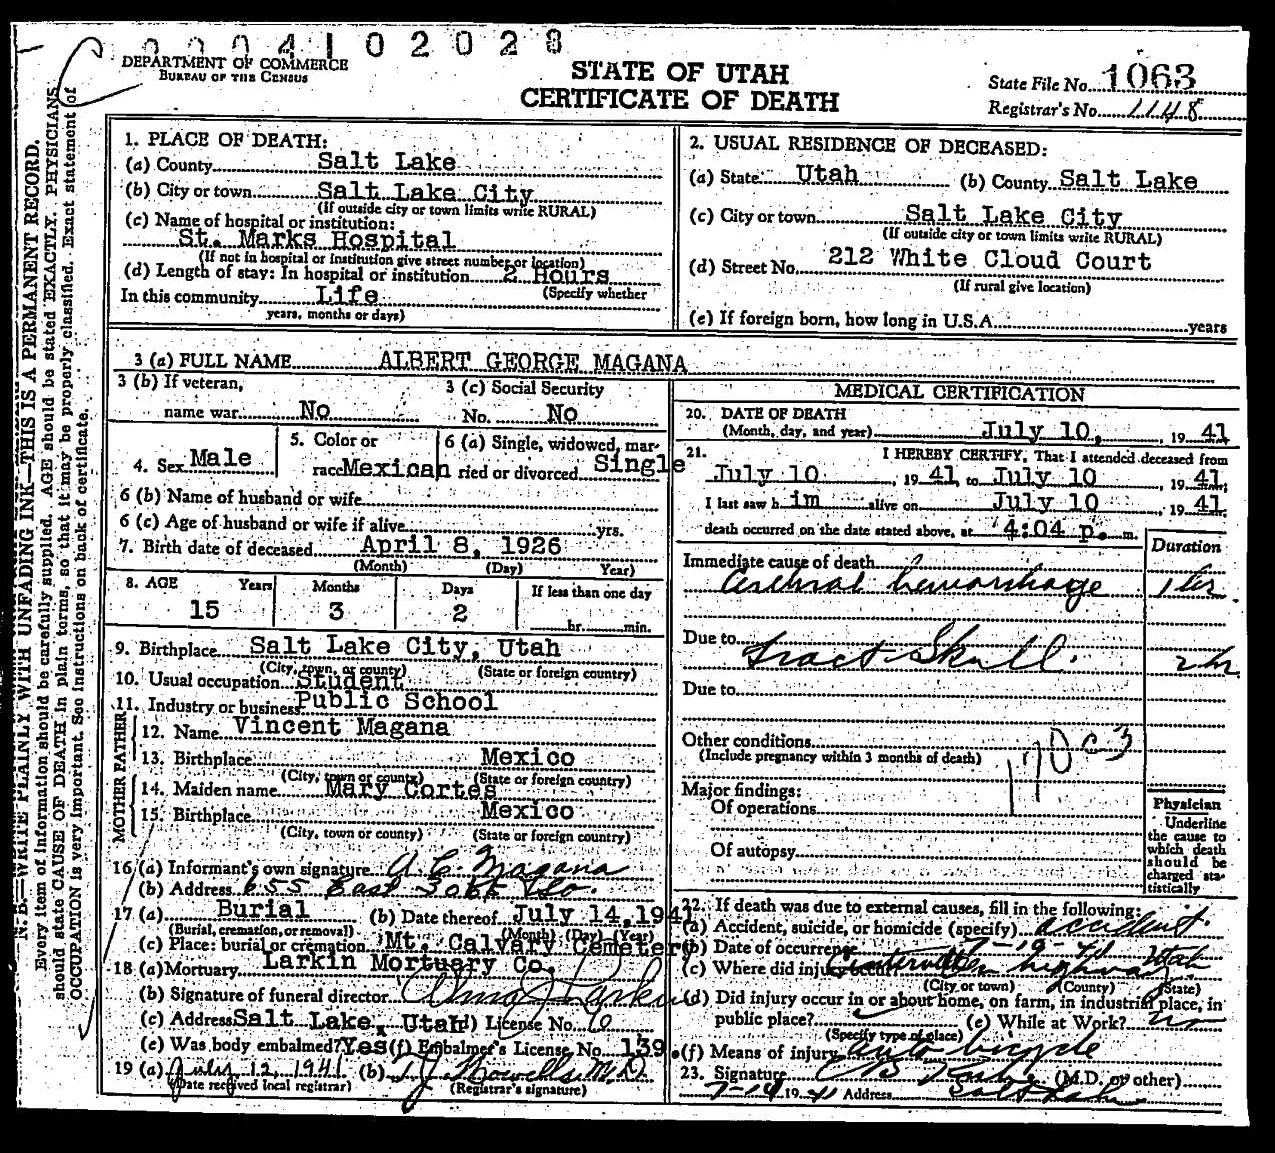 0004102028
DEPARTMENT OF COMMERCE
BUREAU OF THE CENSUS
STATE OF UTAH
CERTIFICATE OF DEATH
State File No. 1063
Registrar's No. 1148
N. B.—WRITE PLAINLY WITH UNFADING INK—THIS IS A PERMANENT RECORD.
Every item of information should be carefully supplied. AGE should be stated EXACTLY. PHYSICIANS
should state CAUSE OF DEATH in plain terms, so that it may be properly classified. Exact statement of
OCCUPATION is very important. See instructions on back of certificate.
1. PLACE OF DEATH:
(a) County Salt Lake
(b) City or town Salt Lake City
(If outside city or town limits write RURAL)
(c) Name of hospital or institution:
St. Marks Hospital
(If not in hospital or institution give street number or location)
(d) Length of stay: In hospital or institution 2 Hours
In this community Life (Specify whether
years, months or days)
2. USUAL RESIDENCE OF DECEASED:
(a) State Utah (b) County Salt Lake
(c) City or town Salt Lake City
(If outside city or town limits write RURAL)
(d) Street No. 212 White Cloud Court
(If rural give location)
(e) If foreign born, how long in U.S.A. years
3 (a) FULL NAME ALBERT GEORGE MAGANA
3 (b) If veteran,
name war No
3 (c) Social Security
No. No
4. Sex Male
5. Color or
race Mexican
6 (a) Single, widowed, mar-
ried or divorced Single
6 (b) Name of husband or wife
6 (c) Age of husband or wife if alive yrs.
7. Birth date of deceased April 8, 1926
(Month) (Day) Year)
8. AGE Years Months Days If less than one day
15 3 2 hr. min.
9. Birthplace Salt Lake City, Utah
(City, town, or county) (State or foreign country)
10. Usual occupation Student
11. Industry or business Public School
FATHER
12. Name Vincent Magana
13. Birthplace Mexico
(City, town or county) (State or foreign country)
MOTHER
14. Maiden name Mary Cortes
15. Birthplace Mexico
(City, town or county) (State or foreign country)
16 (a) Informant's own signature A. C. Magana
(b) Address 655 East
17 (a) Burial (b) Date thereof July 14, 1941
(Burial, cremation, or removal) (Month) (Day) (Year)
(c) Place: burial or cremation Mt. Calvary Cemetery
18 (a) Mortuary Larkin Mortuary Co.
(b) Signature of funeral director Alma J Larkin
(c) Address Salt Lake, Utah (d) License No. 6
(e) Was body embalmed? Yes (f) Embalmer's License No. 139
19 (a) July 12, 1941 (b) T.J. Howells M.D.
(Date received local registrar) (Registrar's signature)
MEDICAL CERTIFICATION
20. DATE OF DEATH
(Month, day, and year) July 10, , 19 41
21. I HEREBY CERTIFY, That I attended deceased from
July 10 , 19 41, to July 10 , 19 41,
I last saw h im alive on July 10 , 19 41,
death occurred on the date stated above, at 4:04 p. m.
Duration
Immediate cause of death
Cerebral hemorrhage 1 hr.
Due to Fract Skull. 2 hr.
Due to
Other conditions
(Include pregnancy within 3 months of death)
170 c3
Major findings:
Of operations
Of autopsy
Physician
Underline
the cause to
which death
should be
charged sta-
tistically
22. If death was due to external causes, fill in the following:
(a) Accident, suicide, or homicide (specify) accident
(b) Date of occurrence 7-10-41
(c) Where did injury occur? Centerville highway Utah
(City or town) (County) (State)
(d) Did injury occur in or about home, on farm, in industrial place, in
public place? (e) While at Work? no
(Specify type of place)
(f) Means of injury auto bicycle
23. Signature (M.D. or other)
7-14 19 41 Address Salt Lake